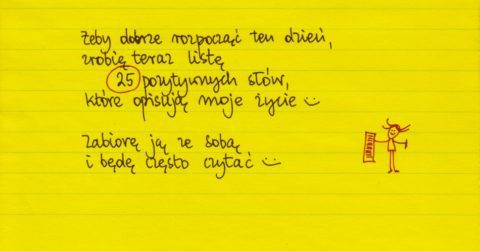 Żeby dobrze rozpocząć ten dzień,
zrobię teraz listę
25 pozytywnych słów,
które opisują moje życie
Zabiorę ją ze sobą
i będę często czytać